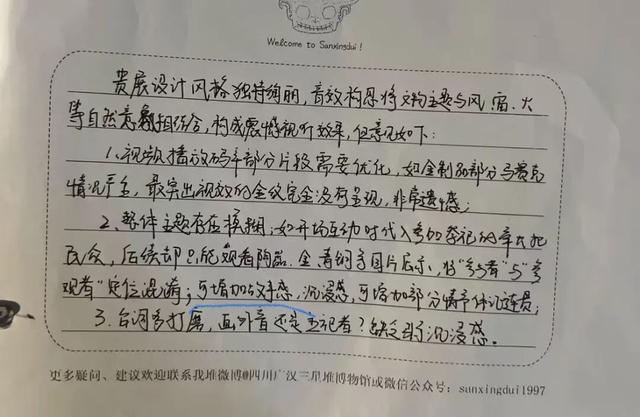 Welcome to Sanxingdui!
贵展设计风格独特绚丽,音效构思将文物主题与风、雷、火
等自然意象相结合,构成震撼视听效果,但意见如下:
1、视频播放码率部分片段需要优化,如金制品部分马赛克
情况严重,最突出视效的金纹完全没有呈现,非常遗憾;
2、整体主题存在模糊;如开场互动时代入参加祭祀的章大祀
民众,后续却只能观看陶器、金青铜等图片展示,将“参与者”与“参
观者”定位混淆;可增加故事感、沉浸感,可增加部分情节体验连贯;
3、台词多打磨,画外音还是主记者?缺乏沉浸感。
更多疑问、建议欢迎联系我堆微博@四川广汉三星堆博物馆或微信公众号:sanxingdui1997